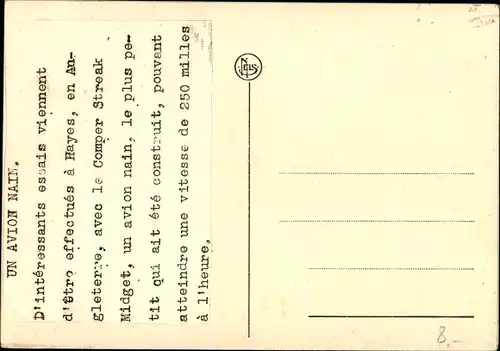 UN AVION NAIN.
D'intéressants essais viennent
d'être effectués à Hayes, en An-
gleterre, avec le Comper Streak
Midget, un avion nain, le plus pe-
tit qui ait été construit, pouvant
atteindre une vitesse de 250 milles
à l'heure.
NELS
8,-